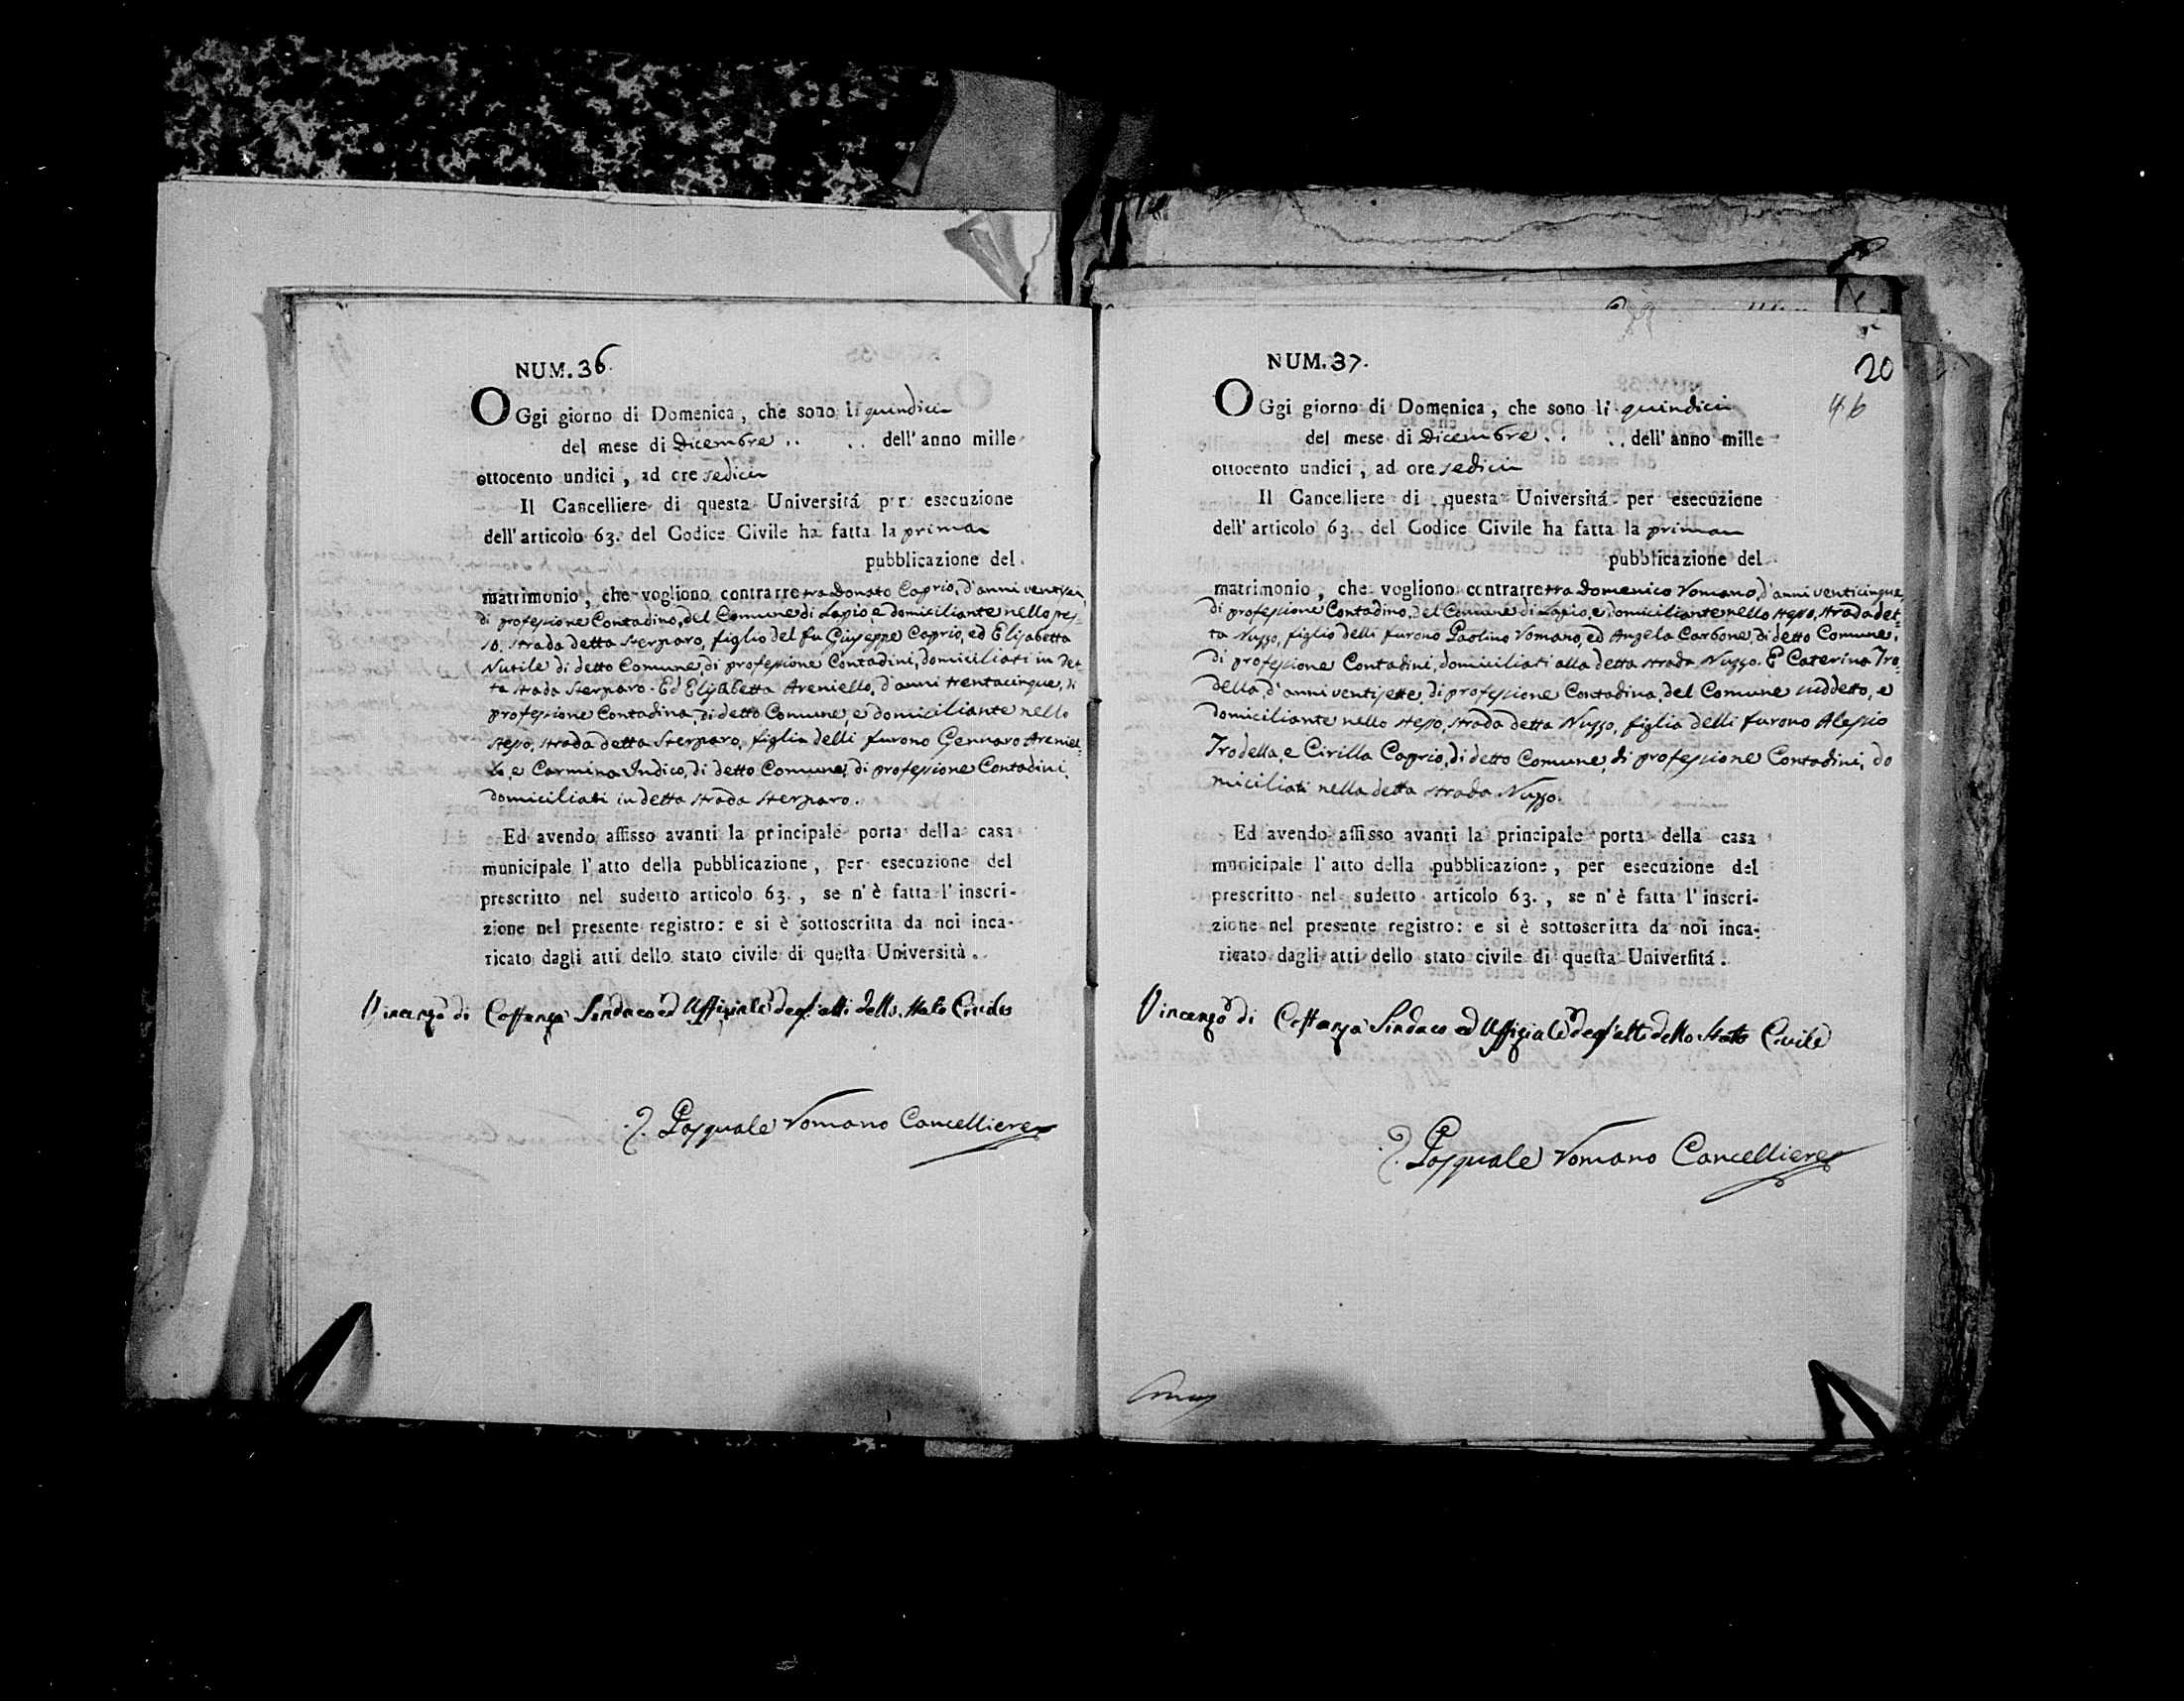 NUM. 36.
OGgi giorno di Domenica, che sono li quindici
del mese di Dicembre .. .. dell' anno mille
ottocento undici, ad ore sedici
Il Cancelliere di questa Universitá per esecuzione
dell' articolo 63. del Codice Civile ha fatta la prima
pubblicazione del
matrimonio, che vogliono contrarre tra Donato Caprio, d'anni ventisei,
di professione Contadino, del Comune di Lapio, e domiciliante nello stes-
so, strada detta Sterparo, figlio del fu Giuseppe Caprio, ed Elisabetta
Nutile di detto Comune, di professione Contadini, domiciliati in det-
ta strada Sterparo. Ed Elisabetta Areniello, d'anni trentacinque, di
professione Contadina, di detto Comune, e domiciliante nello
stesso, strada detta Sterparo, figlia delli furono Gennaro Areniel-
lo, e Carmina Indico, di detto Comune, di professione Contadini,
domiciliati in detta strada Sterparo.
Ed avendo affisso avanti la principale porta della casa
municipale l' atto della pubblicazione, per esecuzione del
prescritto nel sudetto articolo 63., se n' è fatta l' inscri-
zione nel presente registro: e si è sottoscritta da noi inca-
ricato dagli atti dello stato civile di questa Università.
Vincenzo di Costanza Sindaco ed Uffiziale degl'atti dello Stato Civile
Pasquale Romano Cancelliere
NUM. 37.
20
46
OGgi giorno di Domenica, che sono li quindici
del mese di Dicembre .. .. dell' anno mille
ottocento undici, ad ore sedici
Il Cancelliere di questa Universitá per esecuzione
dell' articolo 63. del Codice Civile ha fatta la prima
pubblicazione del
matrimonio, che vogliono contrarre tra Domenico Romano, d'anni venticinque,
di professione Contadino, del Comune di Lapio, e domiciliante nello stesso, strada det-
ta Nuzzo, figlio delli furono Paolino Romano, ed Angela Carbone, di detto Comune,
di professione Contadini, domiciliati alla detta strada Nuzzo. E Caterina Tro-
della, d'anni ventisette, di professione Contadina, del Comune suddetto, e
domiciliante nello stesso, strada detta Nuzzo, figlia delli furono Alessio
Trodella, e Cirilla Caprio, di detto Comune, di professione Contadini, do
miciliati nella detta strada Nuzzo.
Ed avendo affisso avanti la principale porta della casa
municipale l' atto della pubblicazione, per esecuzione del
prescritto nel sudetto articolo 63., se n' è fatta l' inscri-
zione nel presente registro: e si è sottoscritta da noi inca-
ricato dagli atti dello stato civile di questa Universitá.
Vincenzo di Costanza Sindaco ed Uffiziale degl'atti dello Stato Civile
Pasquale Romano Cancelliere